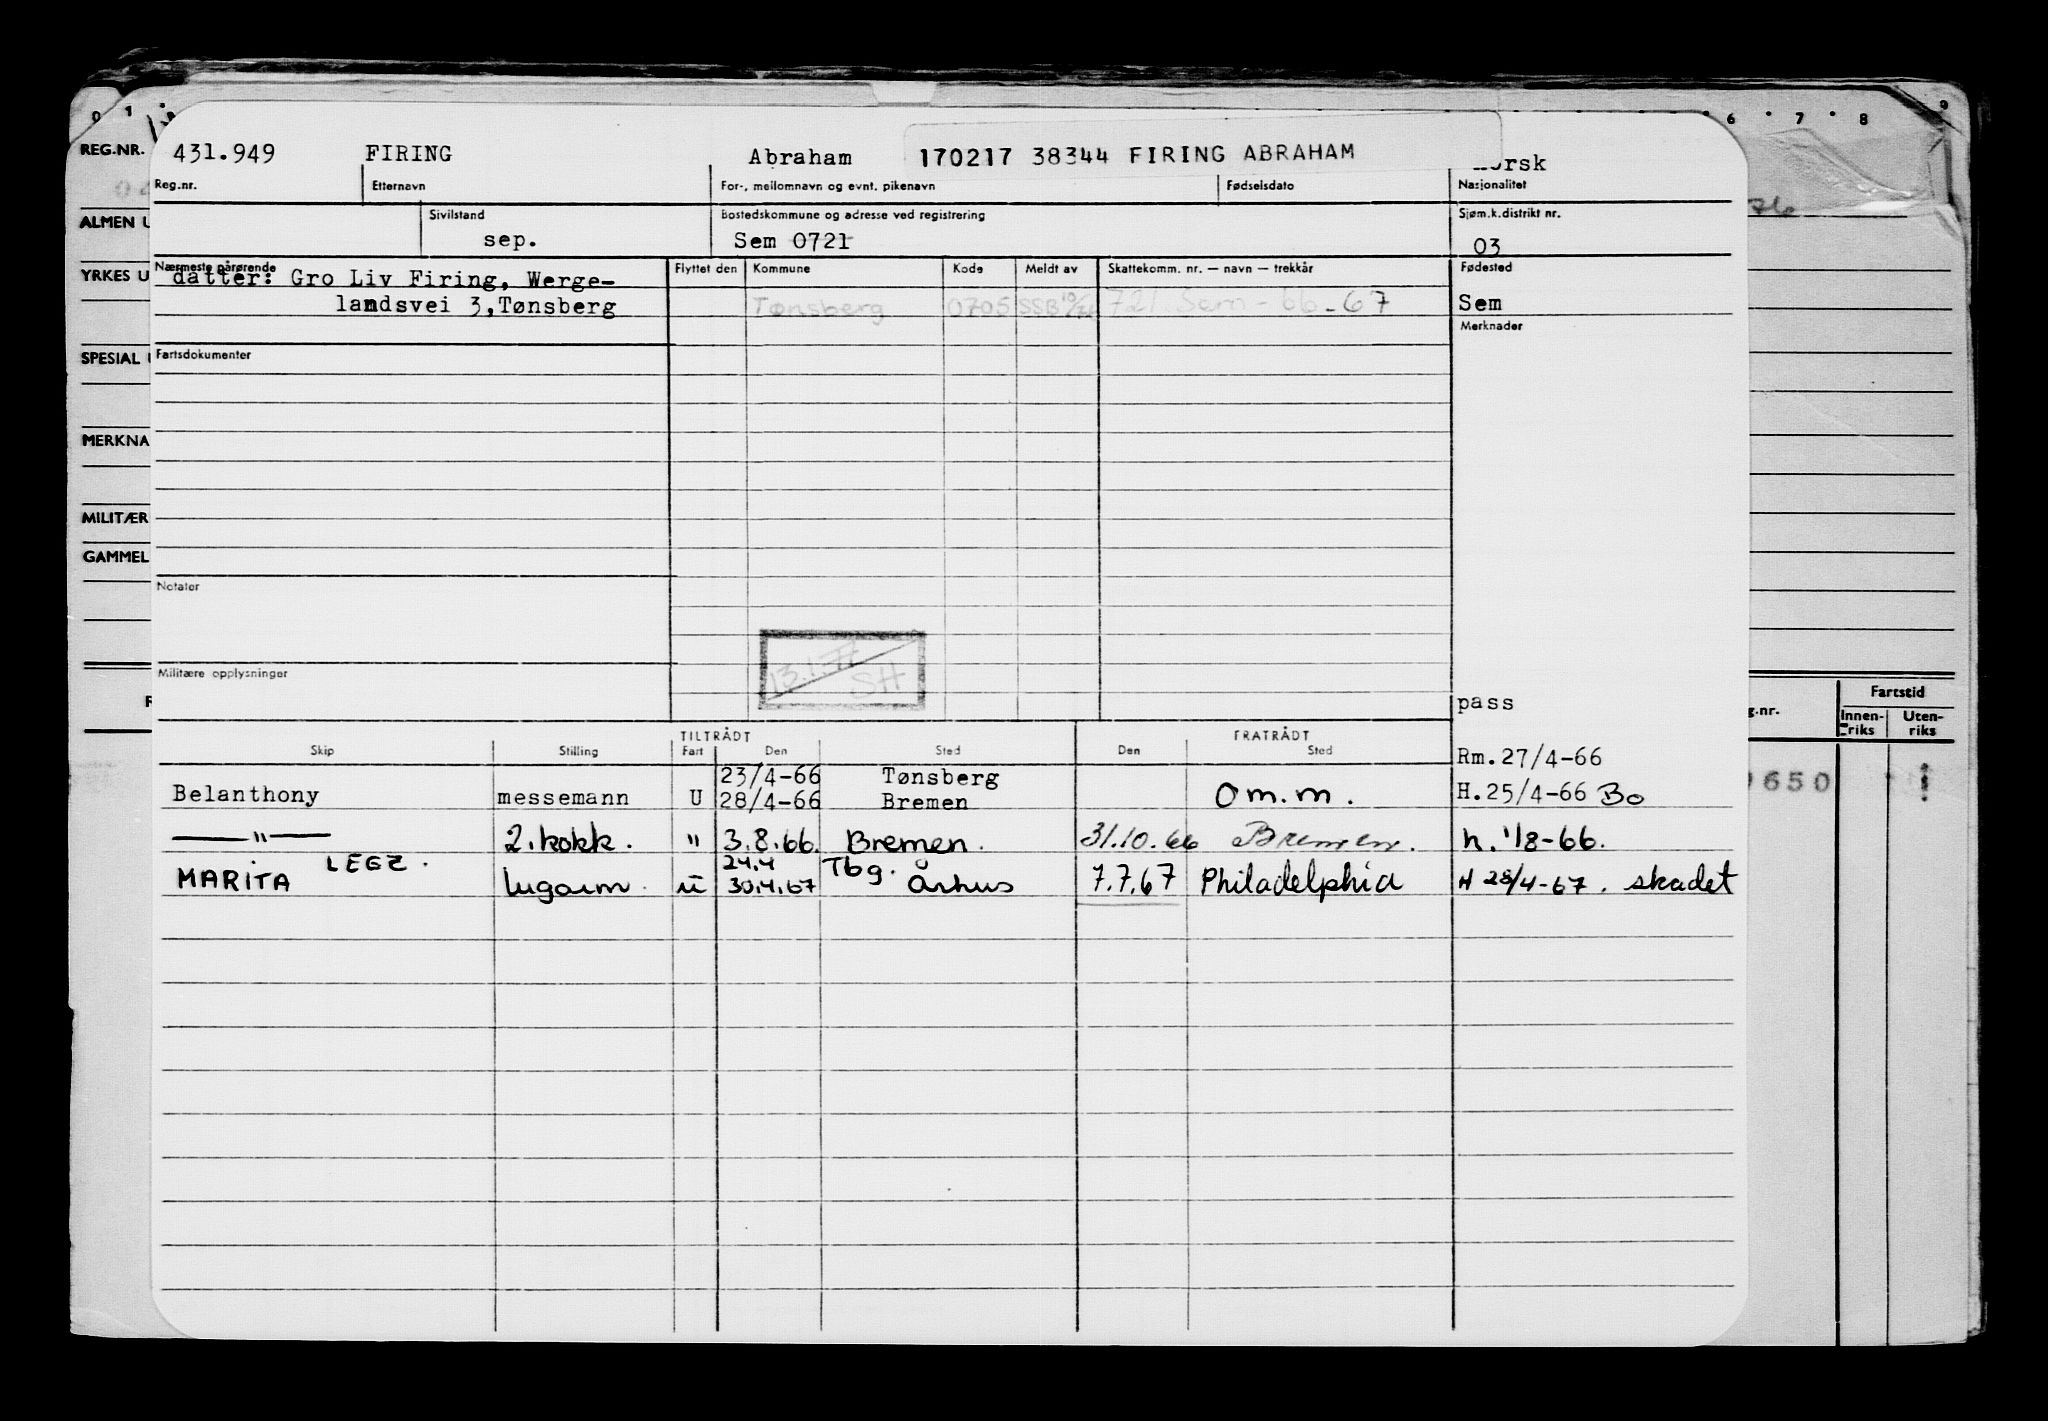 0 1 6 7 8 9
REG.NR. 431.949 FIRING Abraham 170217 38344 FIRING ABRAHAM orsk
Reg.nr. Etternavn For-, mellomnavn og evnt. pikenavn Fødselsdato Nasjonalitet
ALMEN U Sivilstand Bostedskommune og adresse ved registrering Sjøm.k.distrikt nr. 76
sep. Sem 0721 03
YRKES U Nærmeste pårørende Flyttet den Kommune Kode Meldt av Skattekomm. nr. — navn — trekkår Fødested
datter: Gro Liv Firing, Werge-
landsvei 3,Tønsberg Tønsberg 0705 SSB 721 Sem - 66 - 67 Sem
Merknader
SPESIAL Fartsdokumenter
MERKNA
MILITÆR
GAMMEL
Notater
13.1.77
SH
Militære opplysninger
pass
g.nr. Fartstid
Innen-riks Uten-riks
TILTRÅDT FRATRÅDT
Skip Stilling Fart Den Sted Den Sted
Rm.27/4-66
23/4-66 Tønsberg
Belanthony messemann U 28/4-66 Bremen Om.m. H.25/4-66 Bo 650
—"— 2.kokk. " 3.8.66. Bremen. 31.10.66 Bremen. h. 1/8-66.
24.4 Tbg.
MARITA LEGZ. lugarm. u 30.4.67 Århus 7.7.67 Philadelphia H 28/4-67. skadet